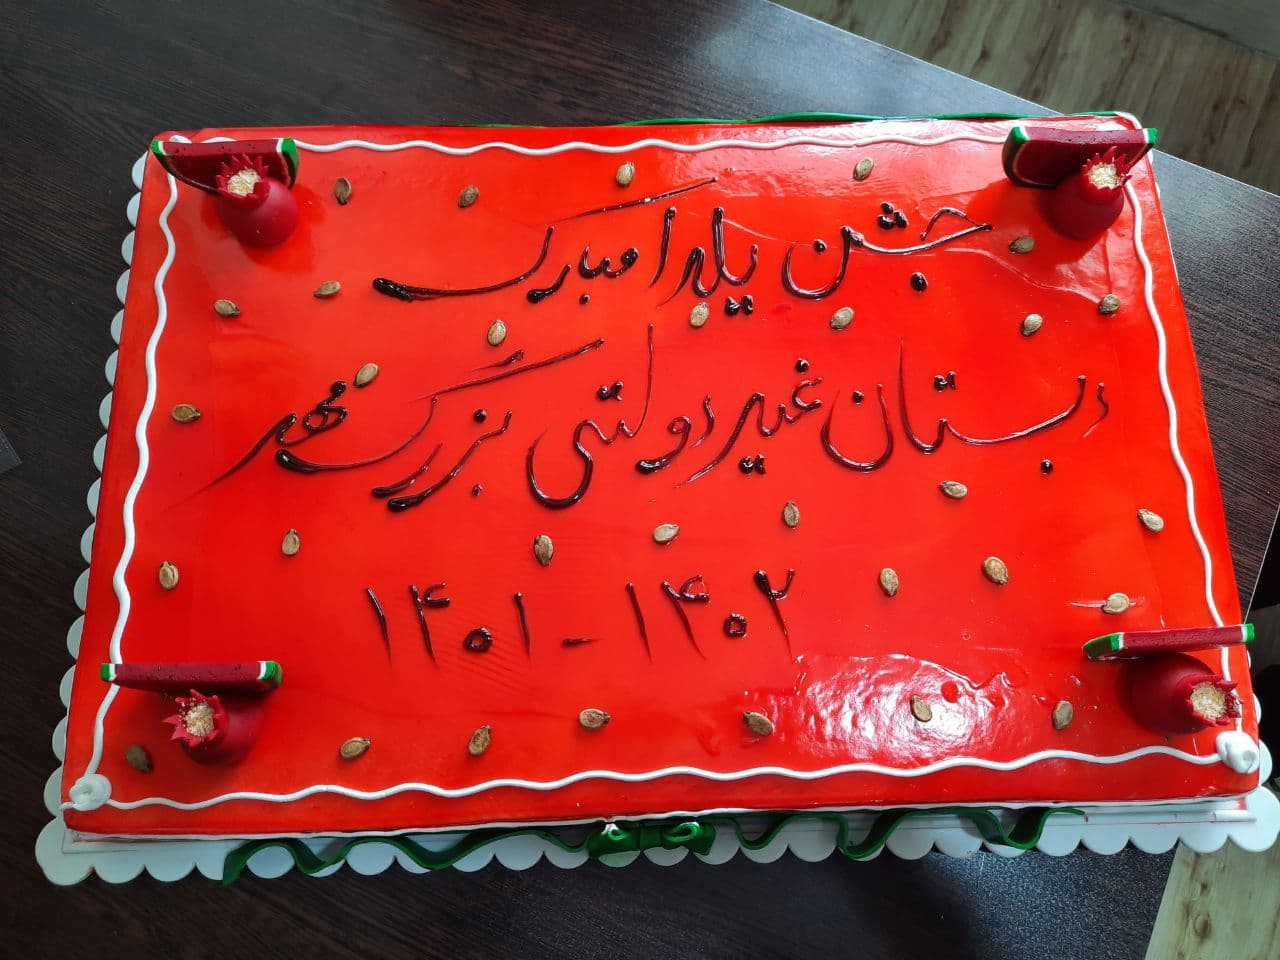 جشن یلدا مبارک
دبستان غیر دولتی بزرگمهر
۱۴۰۱ - ۱۴۰۲